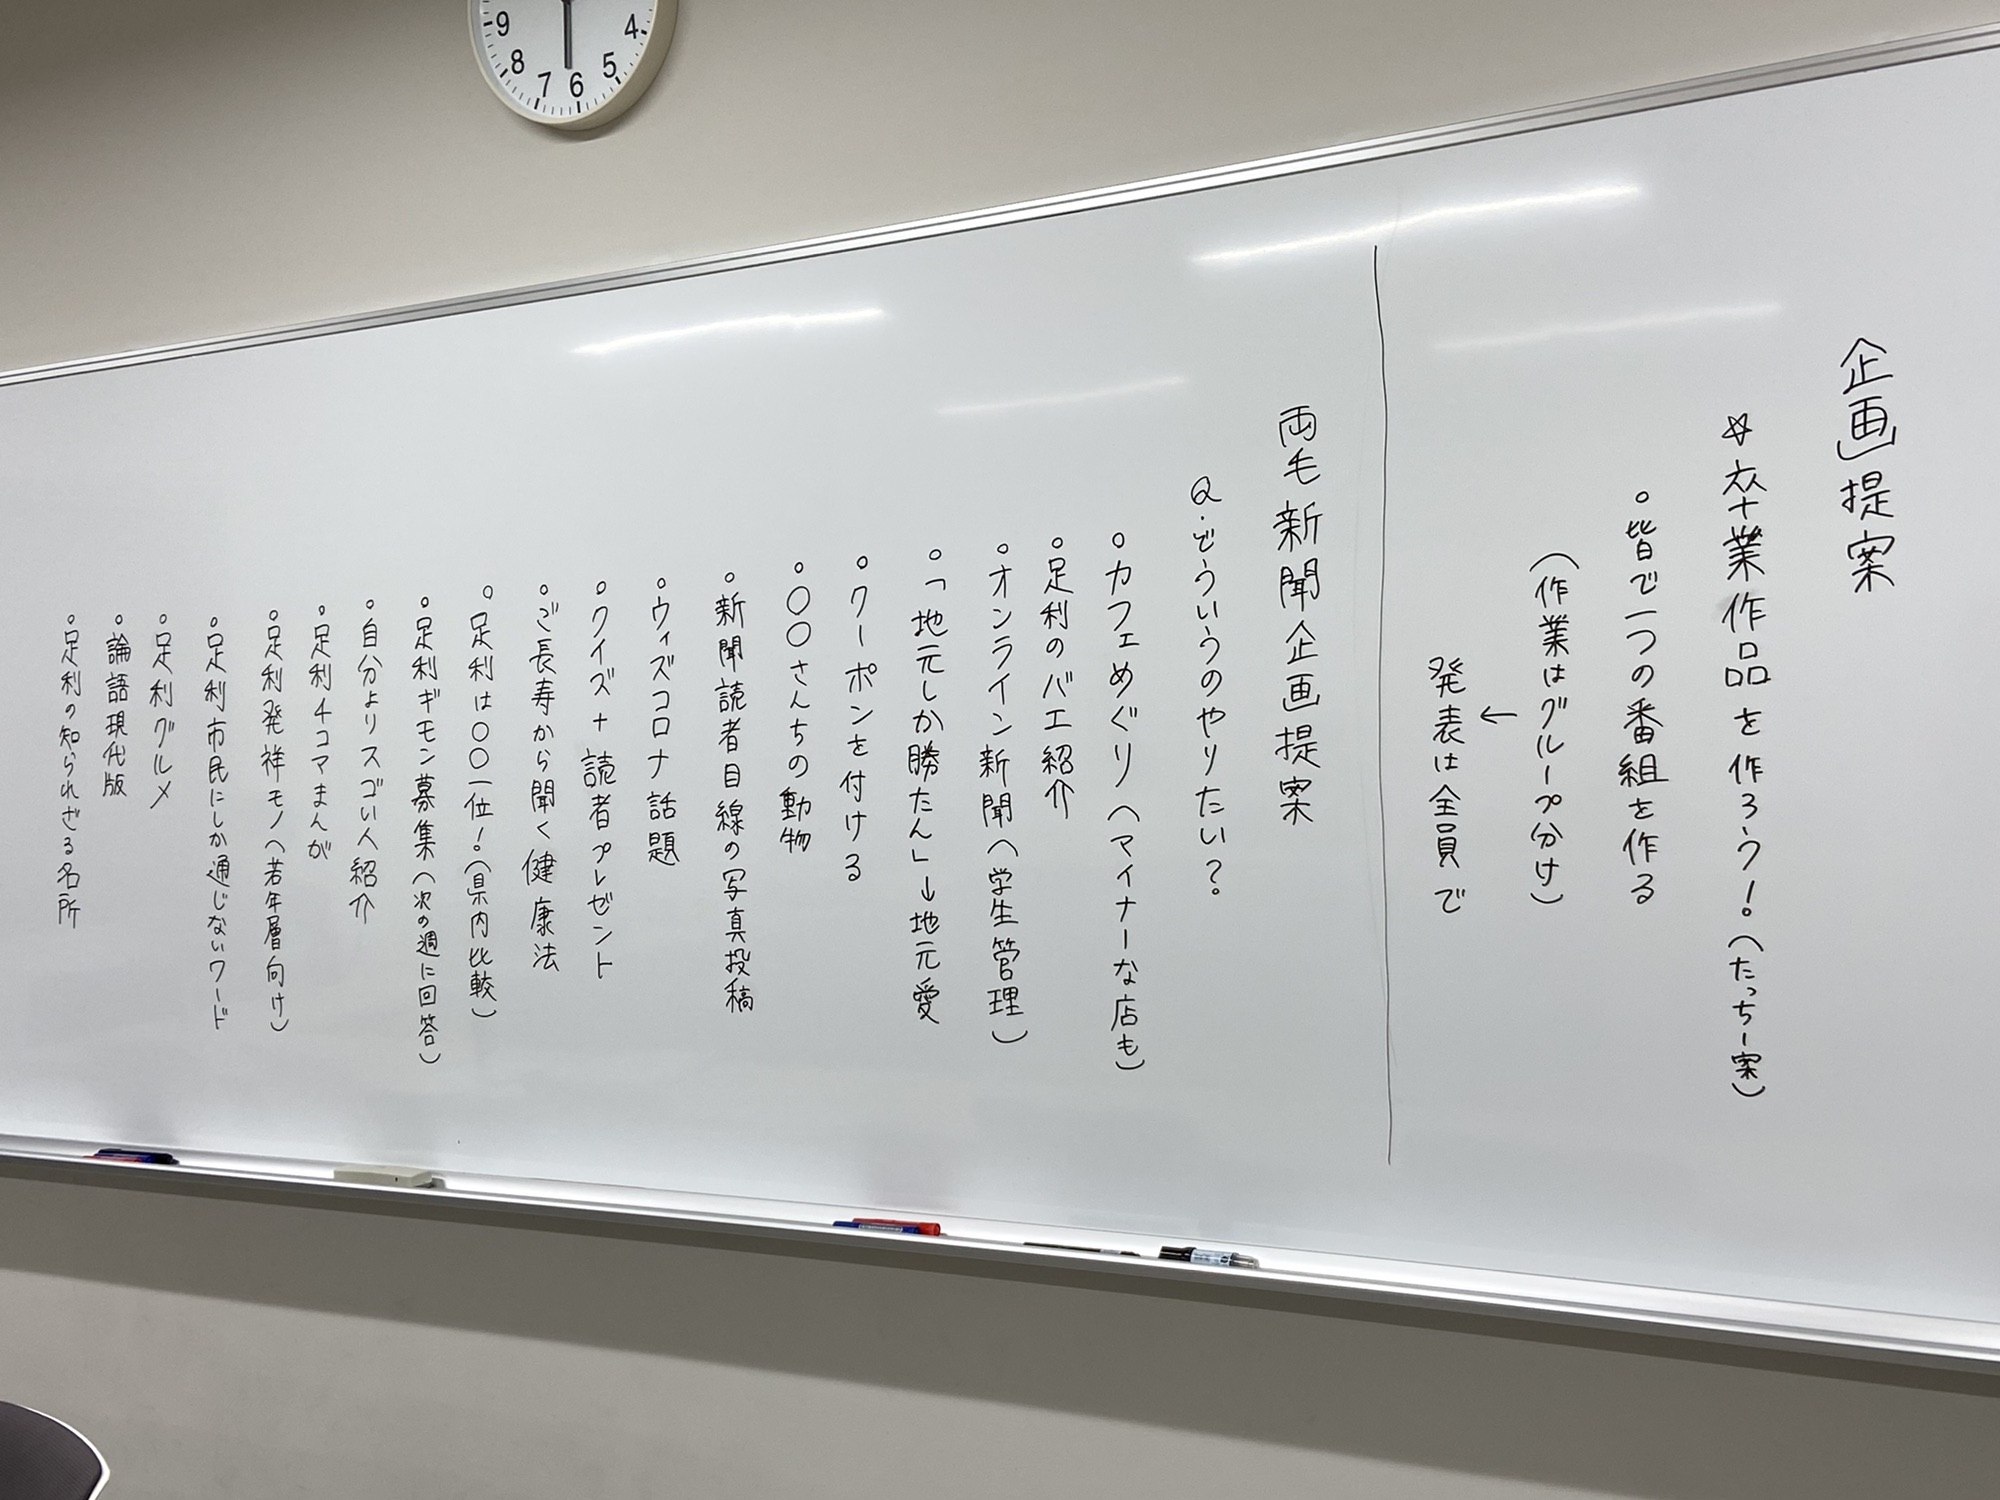 企画提案
☆卒業作品を作ろう!(たっちー案)
○皆で一つの番組を作る
(作業はグループ分け)
↓
発表は全員で
両毛新聞企画提案
Q.どういうのやりたい?
○カフェめぐり(マイナーな店も)
○足利のバエ紹介
○オンライン新聞(学生管理)
○「地元しか勝たん」→地元愛
○クーポンを付ける
○〇〇さんちの動物
○新聞読者目線の写真投稿
○ウィズコロナ話題
○クイズ+読者プレゼント
○ご長寿から聞く健康法
○足利は〇〇一位!(県内比較)
○足利ギモン募集(次の週に回答)
○自分よりスゴい人紹介
○足利4コマまんが
○足利発祥モノ(若年層向け)
○足利市民にしか通じないワード
○足利グルメ
○論語現代版
○足利の知られざる名所
9
8
7
6
5
4